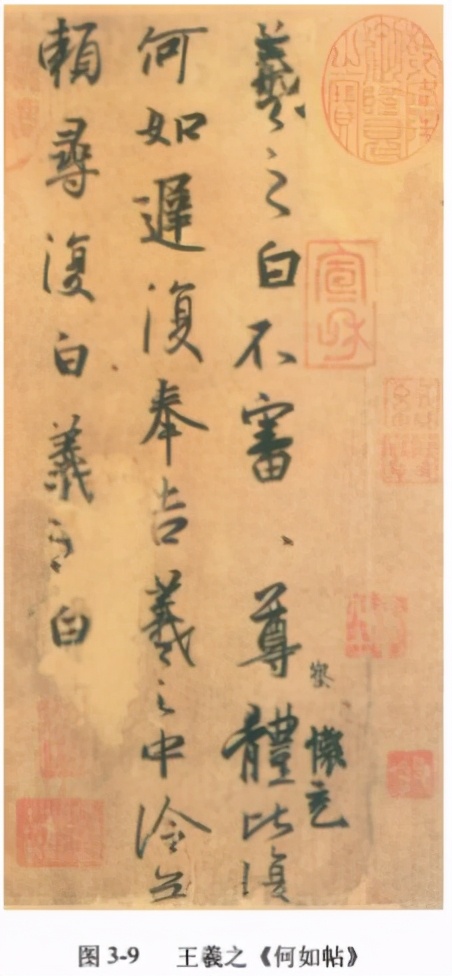 羲之白不審、尊體比復
察
懷充
何如遲復奉告羲之中冷無
賴尋復白羲之白
宣和
图 3-9 王羲之《何如帖》